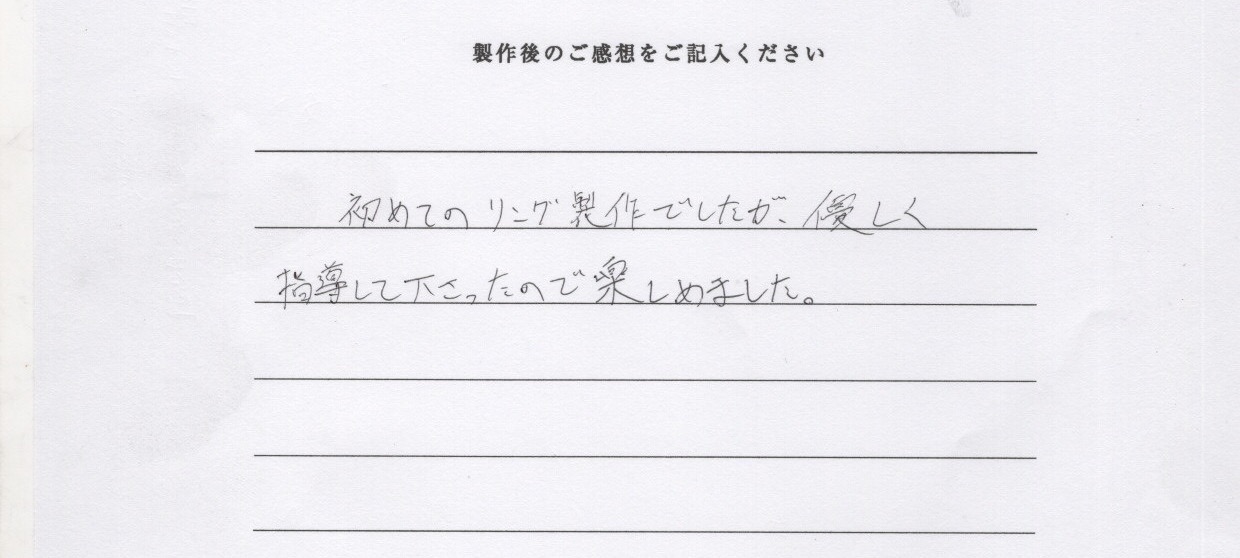 製作後のご感想をご記入ください
初めてのリング製作でしたが、優しく
指導して下さったので楽しめました。